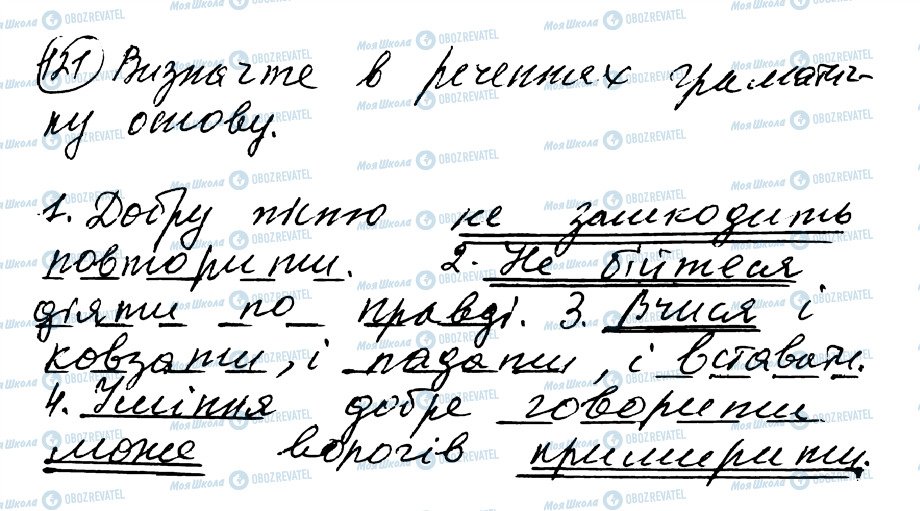 121 Визначте в реченнях граматич-
ну основу.
1. Добру пісню не зашкодить
повторити. 2. Не бійтеся
діяти по правді. 3. Вчися і
ковзати, і падати, і вставати.
4. Уміння добре говорити
може ворогів примирити.